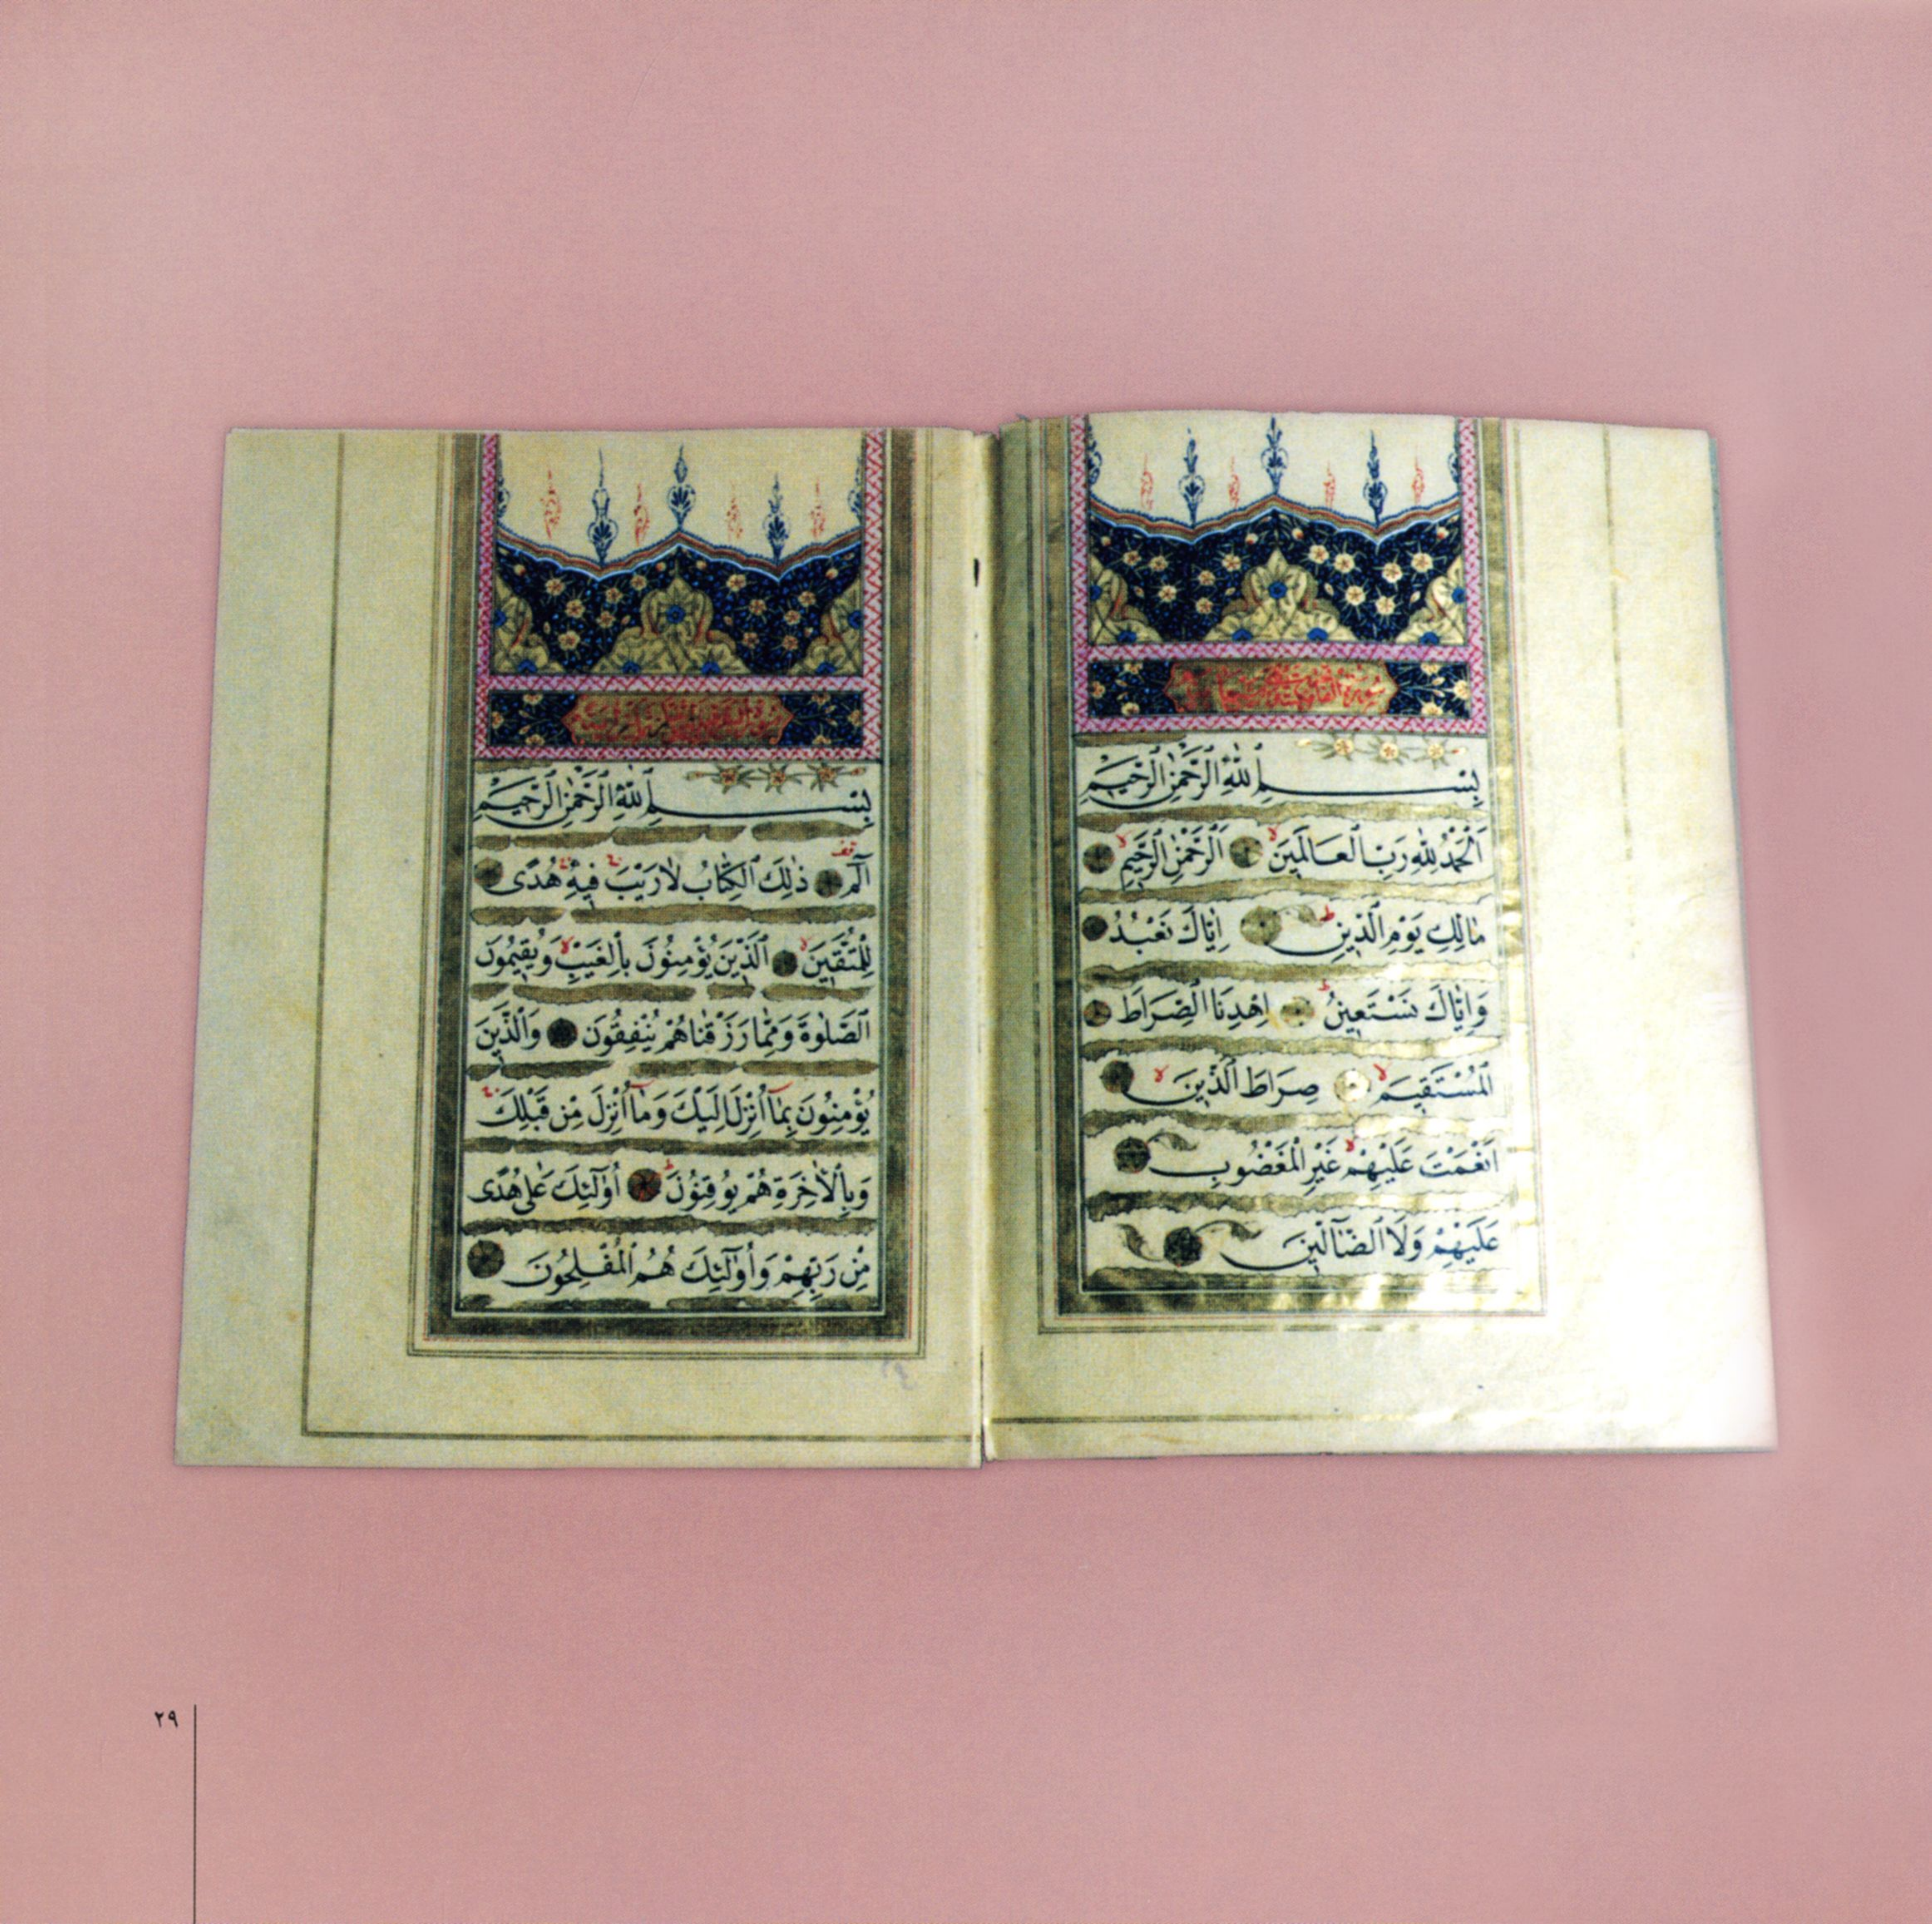 بِسْمِ اللّٰهِ الرَّحْمٰنِ الرَّحِيمِ
اَلْحَمْدُ لِلّٰهِ رَبِّ الْعَالَمِينَ لا اَلرَّحْمٰنِ الرَّحِيمِ لا
مَالِكِ يَوْمِ الدِّينِ ط اِيَّاكَ نَعْبُدُ
وَاِيَّاكَ نَسْتَعِينُ ط اِهْدِنَا الصِّرَاطَ
الْمُسْتَقِيمَ لا صِرَاطَ الَّذِينَ لا
اَنْعَمْتَ عَلَيْهِمْ لا غَيْرِ الْمَغْضُوبِ
عَلَيْهِمْ وَلَا الضَّالِّينَ
بِسْمِ اللّٰهِ الرَّحْمٰنِ الرَّحِيمِ
الٓمٓ ذٰلِكَ الْكِتَابُ لَا رَيْبَ فِيهِ هُدًى
لِلْمُتَّقِينَ لا اَلَّذِينَ يُؤْمِنُونَ بِالْغَيْبِ لا وَيُقِيمُونَ
الصَّلٰوةَ وَمِمَّا رَزَقْنَاهُمْ يُنْفِقُونَ وَالَّذِينَ
يُؤْمِنُونَ بِمَٓا اُنْزِلَ اِلَيْكَ وَمَٓا اُنْزِلَ مِنْ قَبْلِكَ
وَبِالْاٰخِرَةِ هُمْ يُوقِنُونَ ط اُو۬لٰٓئِكَ عَلٰى هُدًى
مِنْ رَبِّهِمْ وَاُو۬لٰٓئِكَ هُمُ الْمُفْلِحُونَ
٢٩